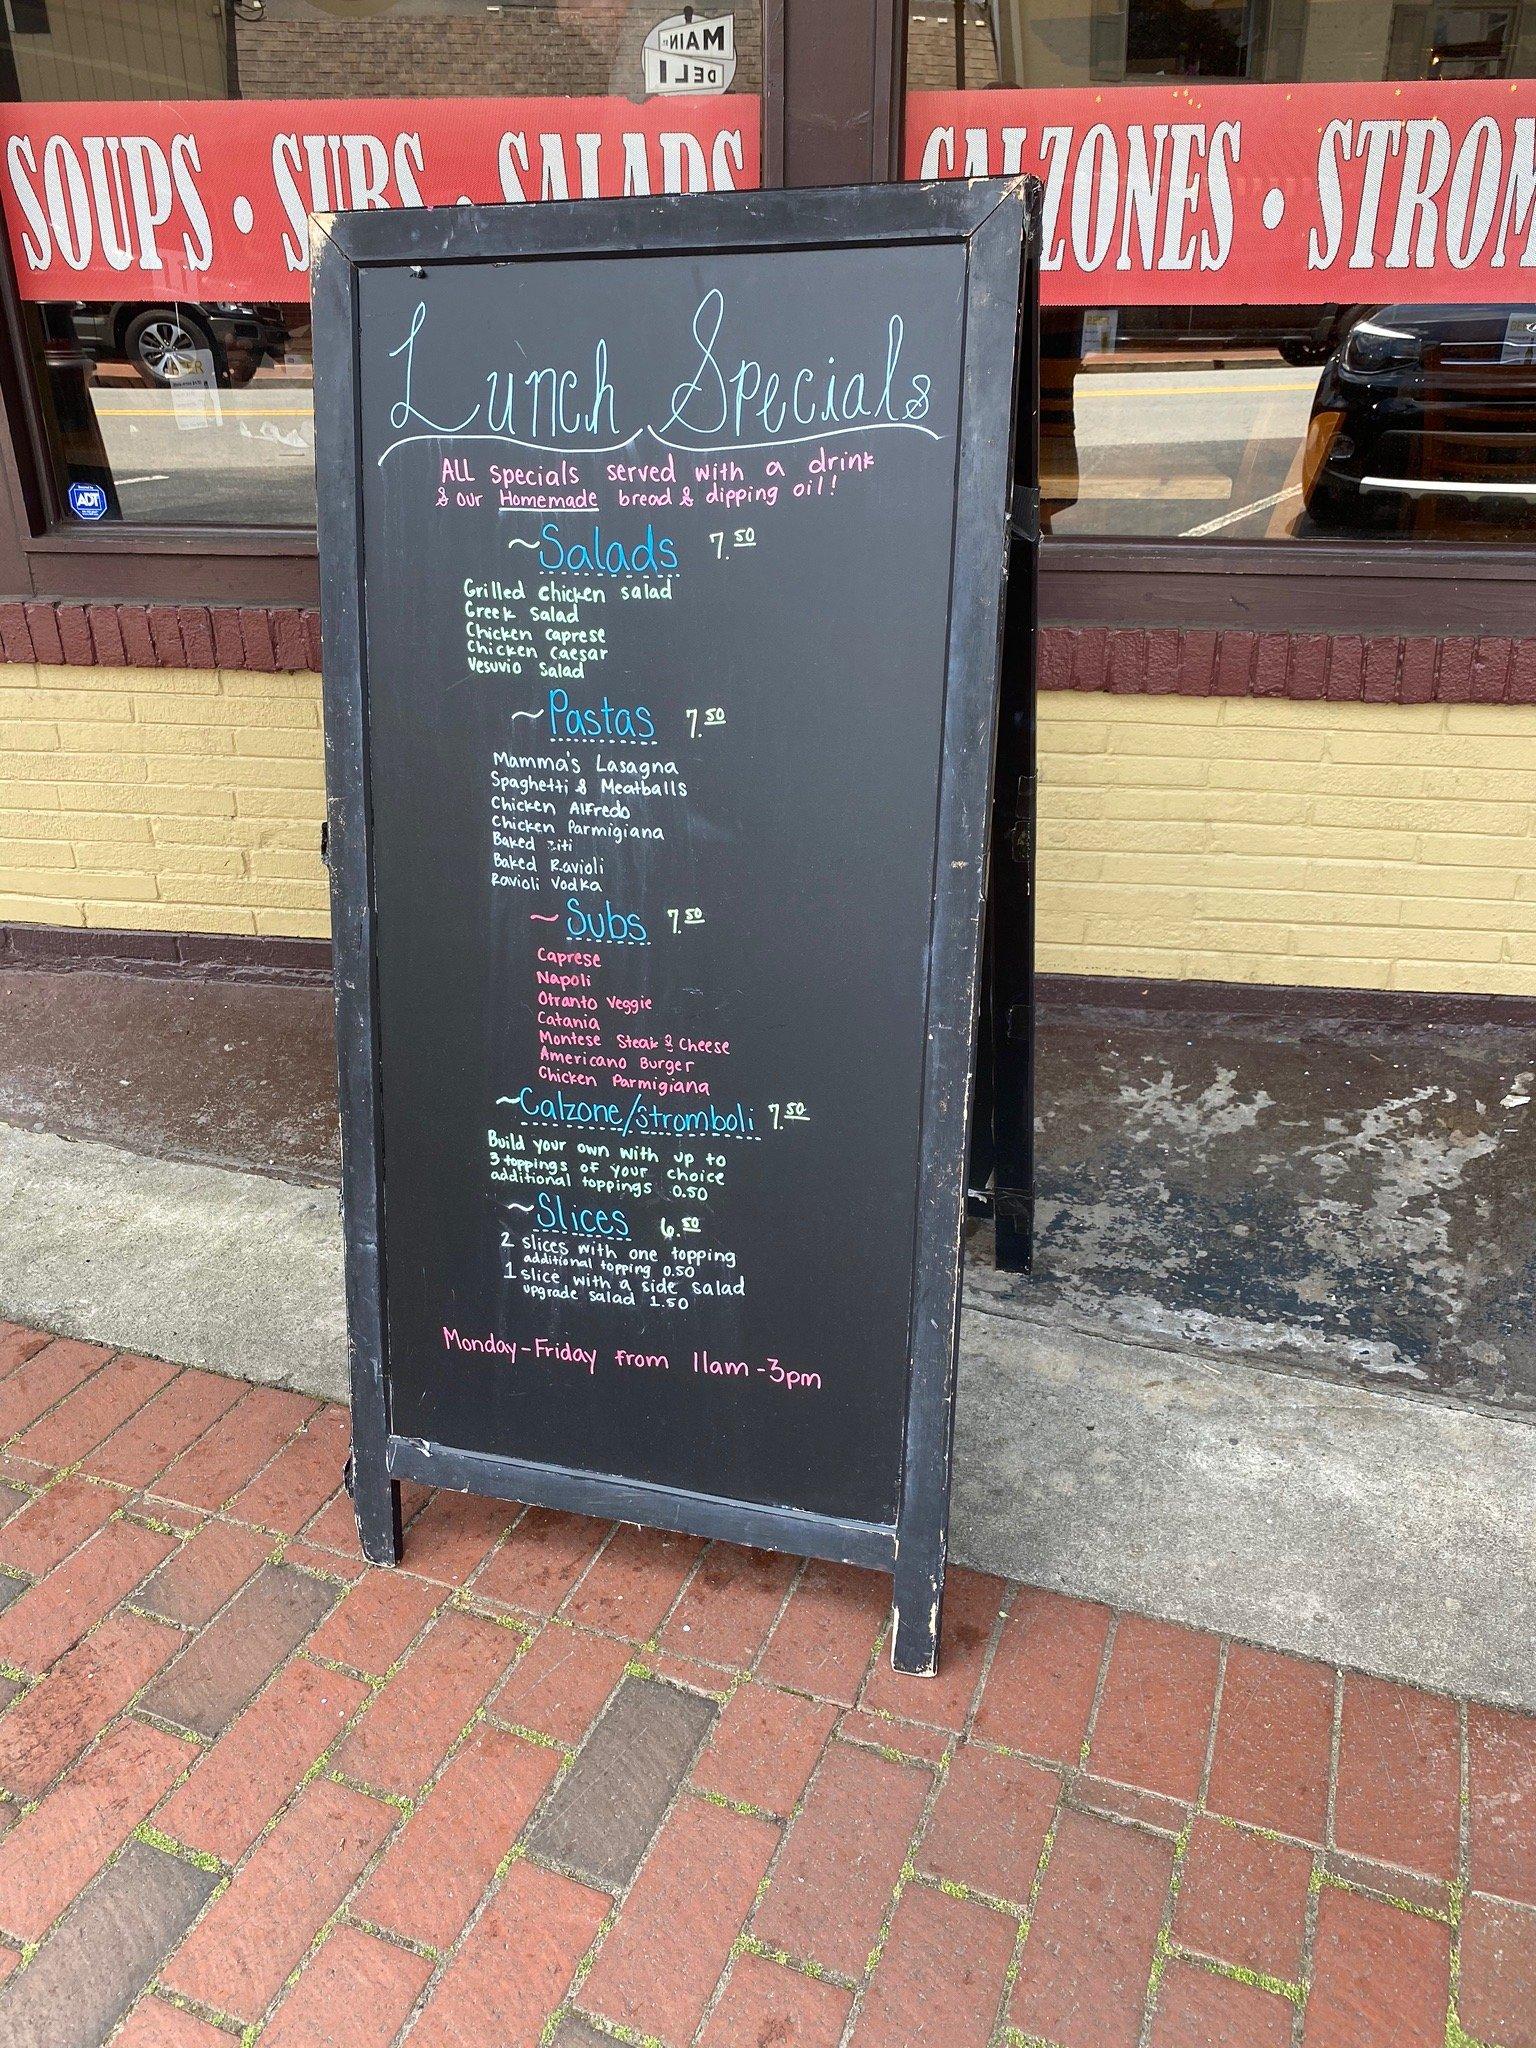 MAIN ST
DELI
SOUPS • SUBS • SALADS
CALZONES • STROM
Lunch Specials
ALL specials served with a drink
& our Homemade bread & dipping oil!
~Salads 7.50
Grilled chicken salad
Greek Salad
Chicken caprese
Chicken Caesar
Vesuvio Salad
~Pastas 7.50
Mamma's Lasagna
Spaghetti & Meatballs
Chicken Alfredo
Chicken Parmigiana
Baked ziti
Baked Ravioli
Ravioli Vodka
~Subs 7.50
Caprese
Napoli
Otranto Veggie
Catania
Montese Steak & Cheese
Americano Burger
Chicken Parmigiana
~Calzone/Stromboli 7.50
Build your own with up to
3 toppings of your choice
additional toppings 0.50
~Slices 6.50
2 slices with one topping
additional topping 0.50
1 slice with a side salad
upgrade salad 1.50
Monday-Friday from 11am-3pm
ADT